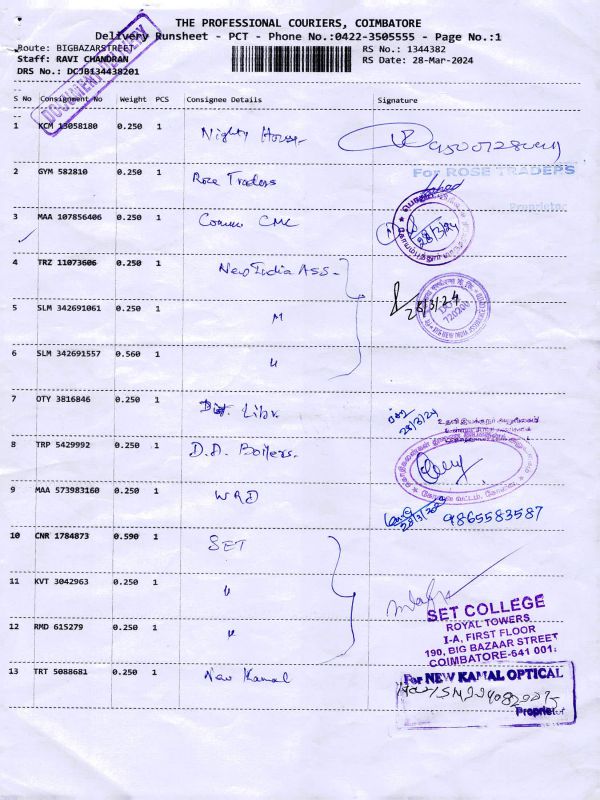 THE PROFESSIONAL COURIERS, COIMBATORE
Delivery Runsheet - PCT - Phone No.:0422-3505555 - Page No.:1
Route: BIGBAZARSTREET RS No.: 1344382
Staff: RAVI CHANDRAN RS Date: 28-Mar-2024
DRS No.: DCJB134438201
S No Consignment No Weight PCS Consignee Details Signature
1 KCM 13058180 0.250 1 Nighty House
For ROSE TRADERS
2 GYM 582810 0.250 1 Rose Traders
Proprietor
3 MAA 107856406 0.250 1 28/3/24
4 TRZ 11073606 0.250 1 New India ASS-
5 SLM 342691061 0.250 1 " 28/3/24
720200
6 SLM 342691557 0.560 1 "
7 OTY 3816846 0.250 1 28/3/24
8 TRP 5429992 0.250 1 D.A. Boilers.
9 MAA 573983160 0.250 1 WRD 9865583587
10 CNR 1784873 0.590 1 SET
11 KVT 3042963 0.250 1 "
SET COLLEGE
ROYAL TOWERS
12 RMD 615279 0.250 1 " I-A, FIRST FLOOR
190, BIG BAZAAR STREET
COIMBATORE-641 001.
13 TRT 5088681 0.250 1 New Kamal For NEW KAMAL OPTICAL
Proprietor